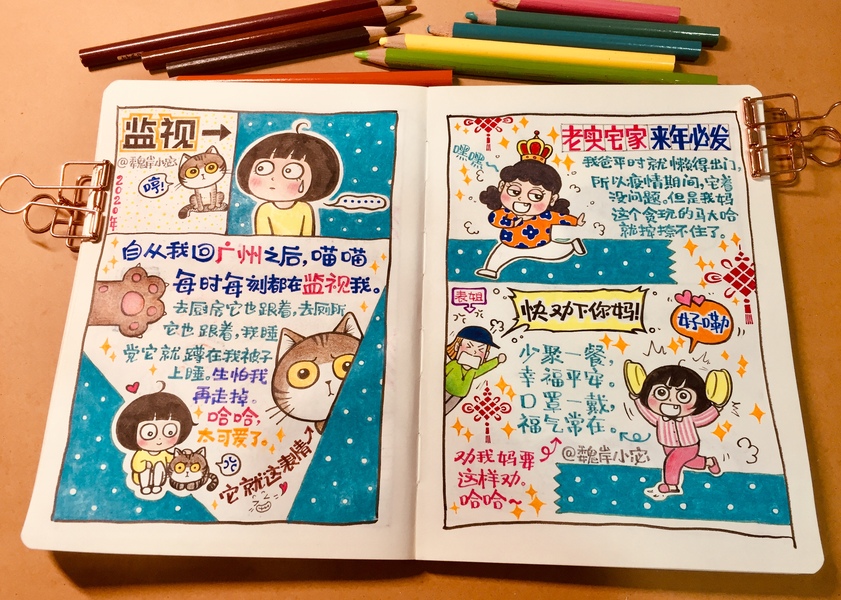 监视→
@鄴岸小宓
哼!
2020年
......
自从我回广州之后,喵喵
每时每刻都在监视我。
去厨房它也跟着,去厕所
它也跟着,我睡
觉它就蹲在我被子
上睡。生怕我
再走掉。
哈哈,
太可爱了。
它就这表情
老实宅家 来年必发
嘿嘿~
我爸平时就懒得出门,
所以疫情期间,宅着
没问题。但是我妈
这个贪玩的马大哈
就按捺不住了。
表姐
快劝下你妈!
好嘞
少聚一餐,
幸福平安。
口罩一戴,
福气常在。
劝我妈要
这样劝。
哈哈~